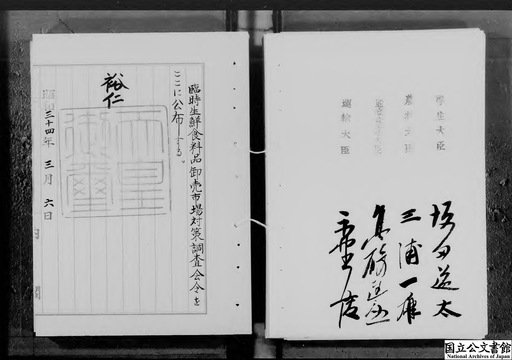 厚生大臣
農林大臣
運輸大臣
坂田道太
三浦一雄
臨時生鮮食料品卸売市場対策調査会令を
ここに公布する。
裕仁
天皇
御璽
昭和三十四年三月六日
国立公文書館
National Archives of Japan